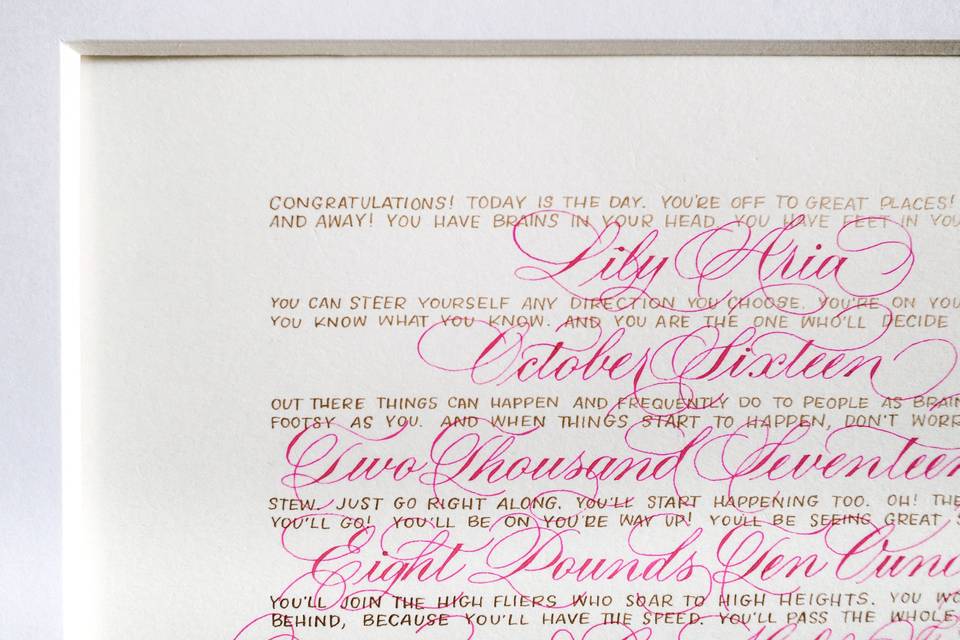 CONGRATULATIONS! TODAY IS THE DAY. YOU'RE OFF TO GREAT PLACES!
AND AWAY! YOU HAVE BRAINS IN YOUR HEAD. YOU HAVE FEET IN YOU
Lily Aria
YOU CAN STEER YOURSELF ANY DIRECTION YOU CHOOSE. YOU'RE ON YOU
YOU KNOW WHAT YOU KNOW. AND YOU ARE THE ONE WHO'LL DECIDE
October Sixteen
OUT THERE THINGS CAN HAPPEN AND FREQUENTLY DO TO PEOPLE AS BRAIN
FOOTSY AS YOU. AND WHEN THINGS START TO HAPPEN, DON'T WORR
Two Thousand Seventeen
STEW. JUST GO RIGHT ALONG. YOU'LL START HAPPENING TOO. OH! THE
YOU'LL GO! YOU'LL BE ON YOU'RE WAY UP! YOU'LL BE SEEING GREAT S
Eight Pounds Ten Ounc
YOU'LL JOIN THE HIGH FLIERS WHO SOAR TO HIGH HEIGHTS. YOU WO
BEHIND, BECAUSE YOU'LL HAVE THE SPEED. YOU'LL PASS THE WHOLE